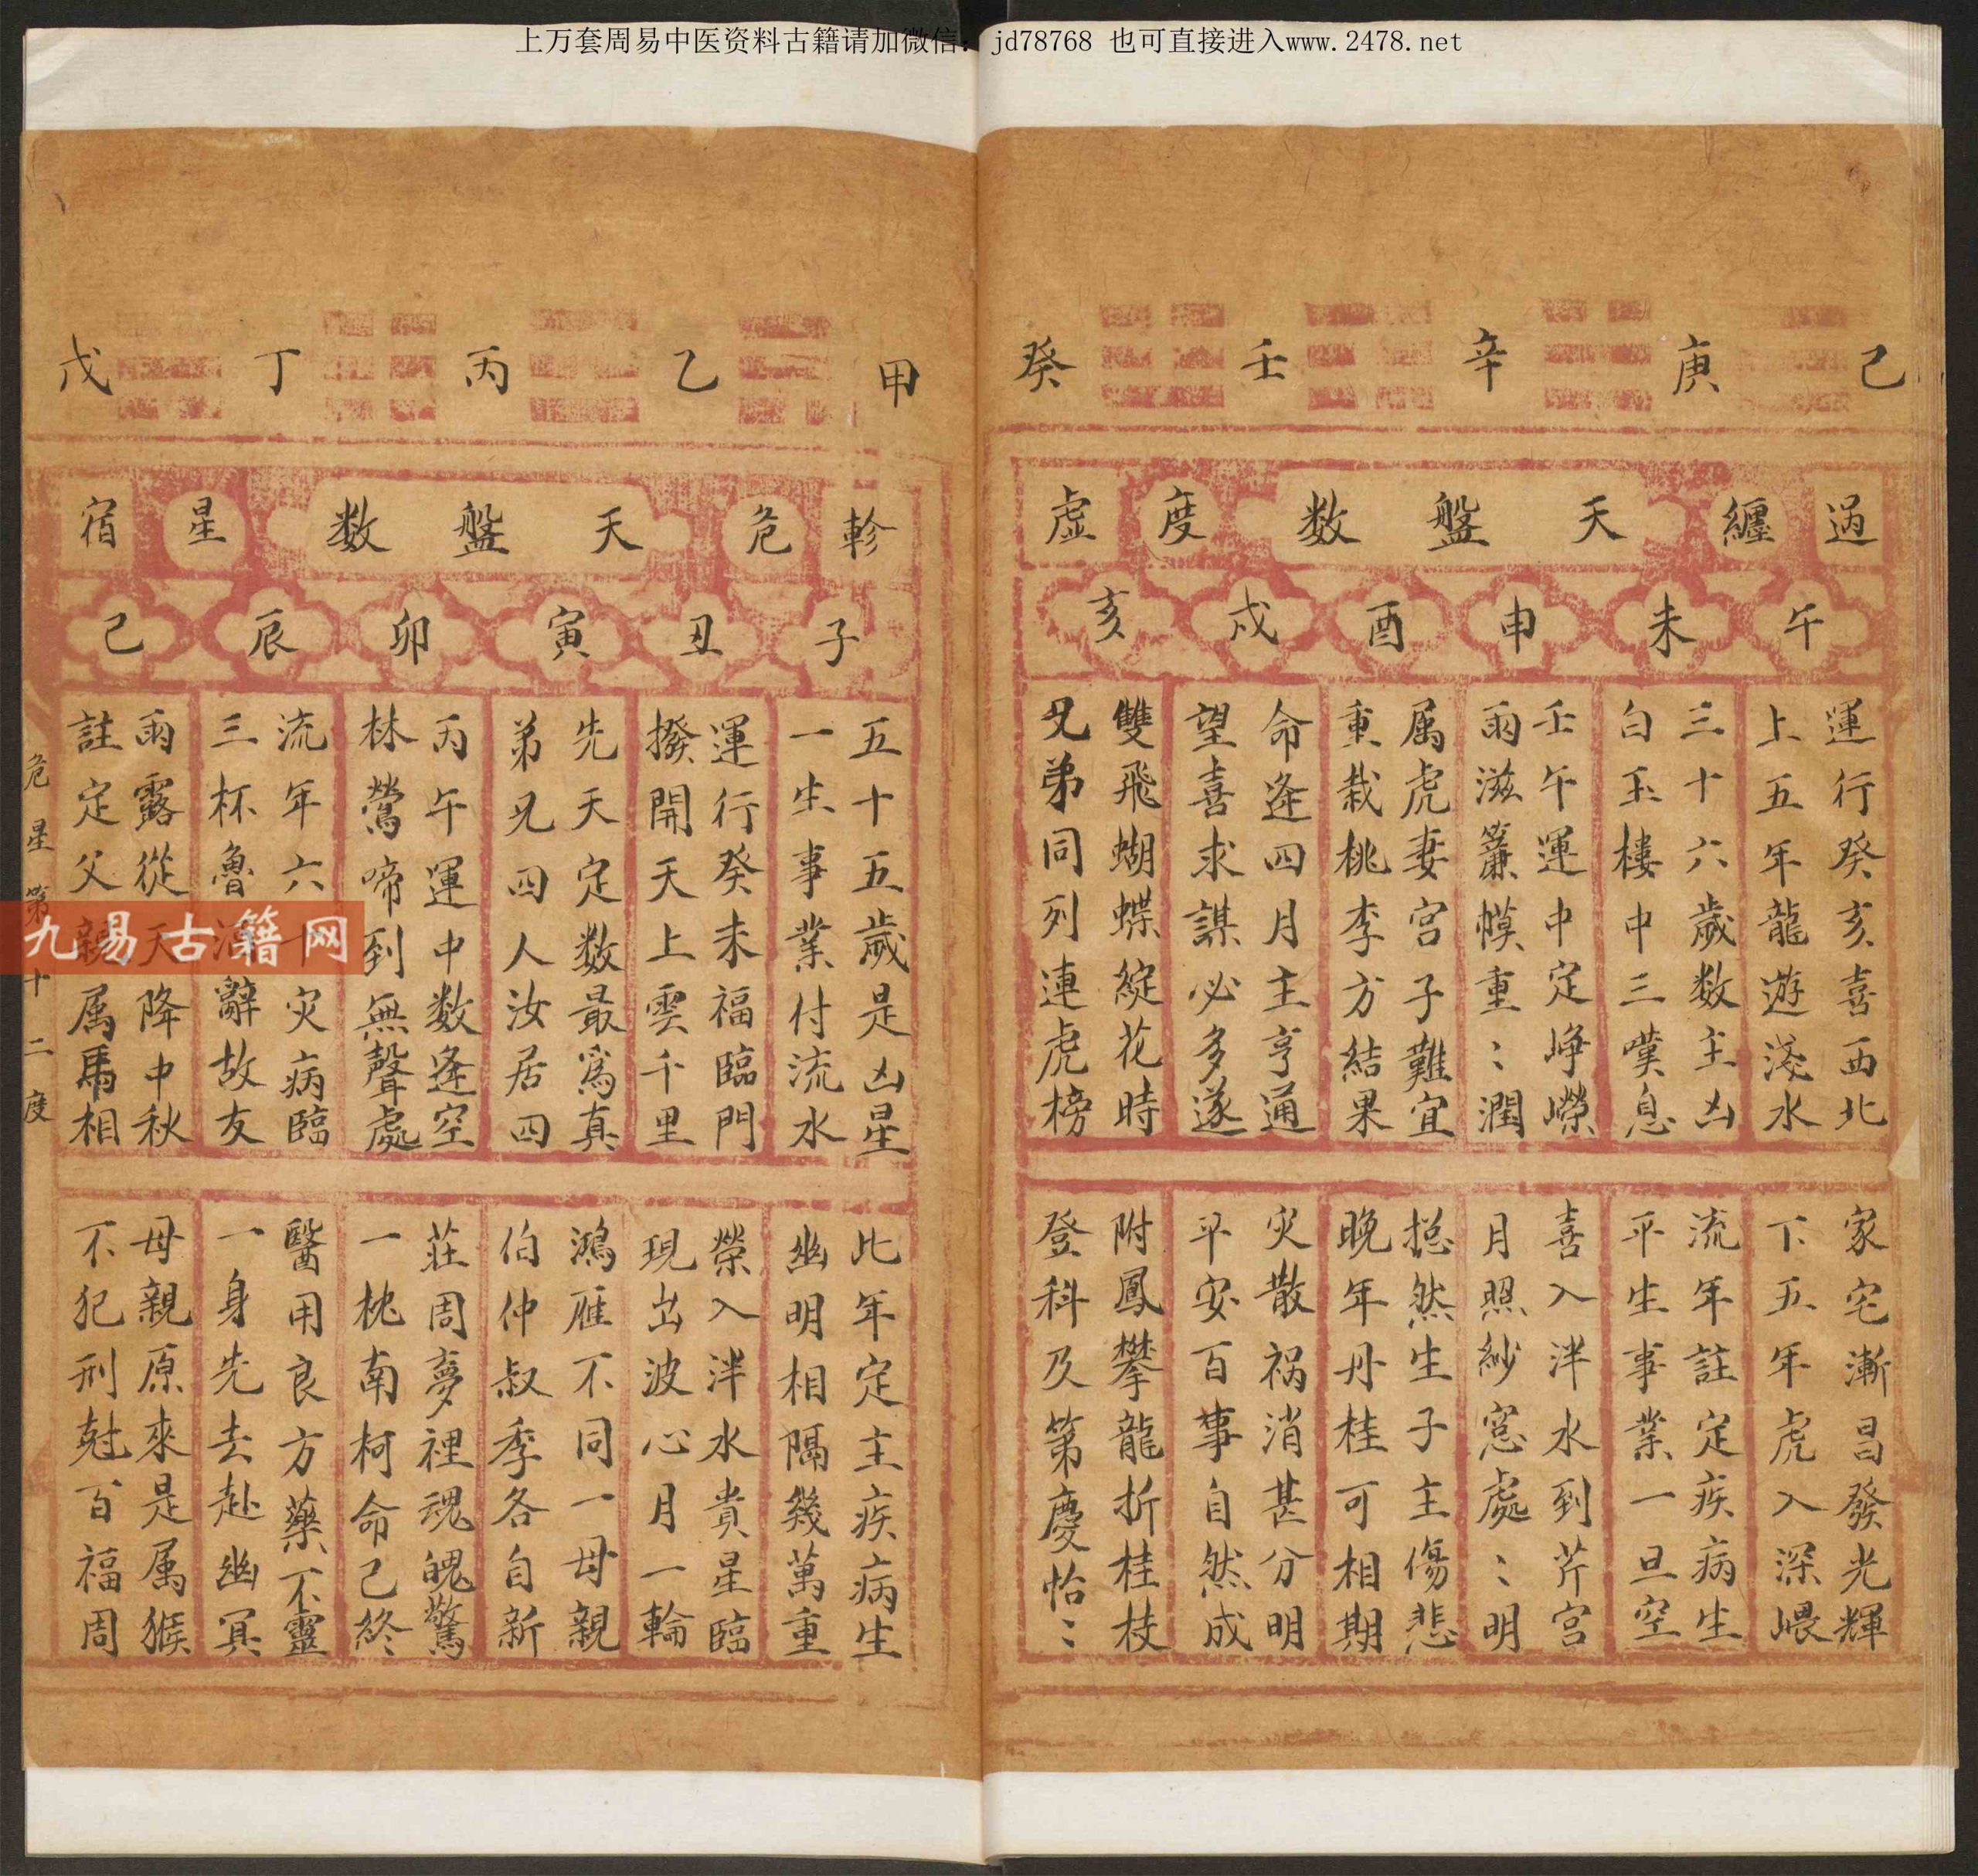 上万套周易中医资料古籍请加微信：jd78768 也可直接进入www.2478.net
己 庚 辛 壬 癸
過 纏 天 盤 数 度 虚
午 未 申 酉 戌 亥
運行癸亥喜西北
上五年龍遊淺水
三十六歲数主凶
白玉樓中三嘆息
壬午運中定崢嶸
雨滋簾幙重〻潤
属虎妻宮子難宜
重栽桃李方結果
命逢四月主亨通
望喜求謀必多遂
雙飛蝴蝶綻花時
兄弟同列連虎榜
家宅漸昌發光輝
下五年虎入深崐
流年註定疾病生
平生事業一旦空
喜入泮水到芹宮
月照紗窓處〻明
捴然生子主傷悲
晚年丹桂可相期
灾散祸消甚分明
平安百事自然成
附鳳攀龍折桂枝
登科及第慶怡〻
甲 乙 丙 丁 戊
軫 危 天 盤 数 星 宿
子 丑 寅 卯 辰 巳
五十五歲是凶星
一生事業付流水
運行癸未福臨門
撥開天上雲千里
先天定数最為真
弟兄四人汝居四
丙午運中数逢空
林鶯啼到無聲處
流年六十灾病臨
三杯魯酒辭故友
雨露從天降中秋
註定父親属馬相
此年定主疾病生
幽明相隔幾萬重
榮入泮水貴星臨
現出波心月一輪
鴻雁不同一母親
伯仲叔季各自新
莊周夢裡魂魄驚
一枕南柯命已終
醫用良方藥不靈
一身先去赴幽冥
母親原來是属猴
不犯刑尅百福周
危星第十二度
九易古籍网